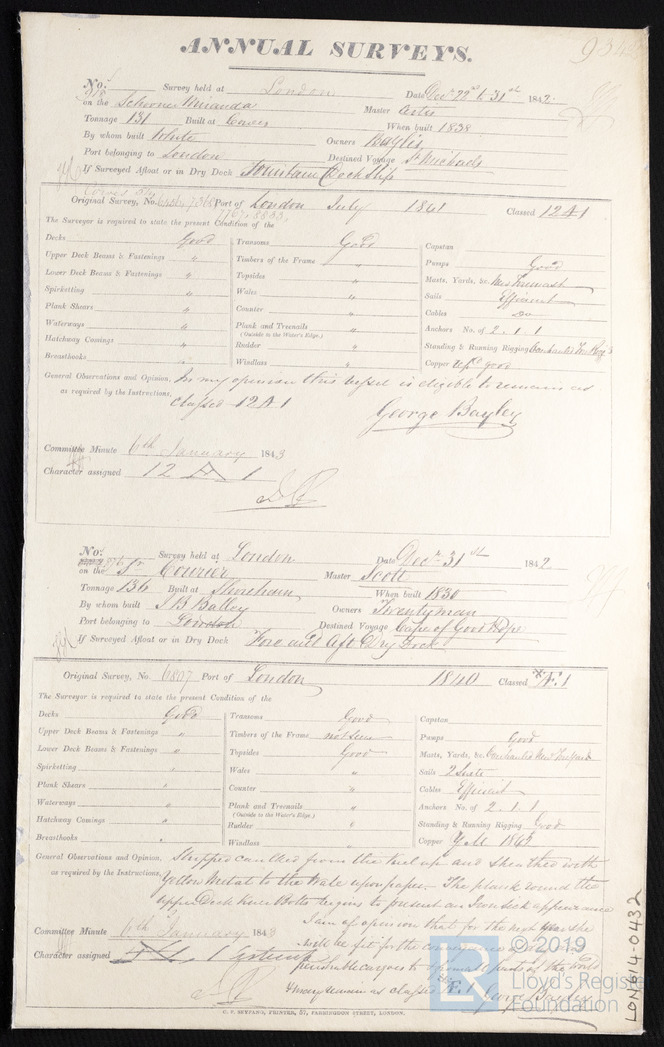 ANNUAL SURVEYS.
No. Survey held at London Date Decr 22nd to 31st 1842
on the Schooner Miranda Master
Tonnage 131 Built at Cowes When built 1838
By whom built White Owners Baylis
Port belonging to London Destined Voyage St Michaels
If Surveyed Afloat or in Dry Dock Fountain Dock Slip
Original Survey, No. Port of London July 1841 Classed 12 A 1
The Surveyor is required to state the present Condition of the
Decks Good
Upper Deck Beams & Fastenings "
Lower Deck Beams & Fastenings "
Spirketting "
Plank Shears "
Waterways "
Hatchway Comings "
Breasthooks "
Transoms Good
Timbers of the Frame "
Topsides "
Wales "
Counter "
Plank and Treenails "
(Outside to the Water's Edge.)
Rudder "
Windlass "
Capstan
Pumps Good
Masts, Yards, &c. New Foremast
Sails Efficient
Cables Do
Anchors No. of 2 . 1 . 1
Standing & Running Rigging
Copper good
General Observations and Opinion, In my opinion this vessel is eligible to remain as
as required by the Instructions, classed 12 A 1
George Bayley
Committee Minute 6th January 1843
Character assigned 12 A 1
No. Survey held at London Date Decr 31st 1842
on the Sr Courier Master Scott
Tonnage 136 Built at Shoreham When built 1830
By whom built J B Balley Owners Twentyman
Port belonging to London Destined Voyage Cape of Good Hope
If Surveyed Afloat or in Dry Dock Fore and Aft Dry Dock
Original Survey, No. 6807 Port of London 1840 Classed Æ 1
The Surveyor is required to state the present Condition of the
Decks Good
Upper Deck Beams & Fastenings "
Lower Deck Beams & Fastenings "
Spirketting "
Plank Shears "
Waterways "
Hatchway Comings "
Breasthooks "
Transoms Good
Timbers of the Frame not seen
Topsides Good
Wales "
Counter "
Plank and Treenails "
(Outside to the Water's Edge.)
Rudder "
Windlass "
Capstan
Pumps Good
Masts, Yards, &c.
Sails 2 Suits
Cables Efficient
Anchors No. of 2 . 1 . 1
Standing & Running Rigging Good
Copper Y M 1842
General Observations and Opinion, Stripped caulked from the keel up and sheathed with
as required by the Instructions, Yellow Metal to the Wale upon paper. The plank round the
upper Deck Bolts begins to present an Iron sick appearance
I am of opinion that for the next year she
will be fit for the conveyance of dry &
perishable cargoes to & from all parts of the World
& may remain as classed Æ 1 George Bayley
Committee Minute 6th January 1843
Character assigned
C. F. SEYFANG, PRINTER, 57, FARRINGDON STREET, LONDON.
LON614-0432
© 2019
LR
Lloyd's Register
Foundation